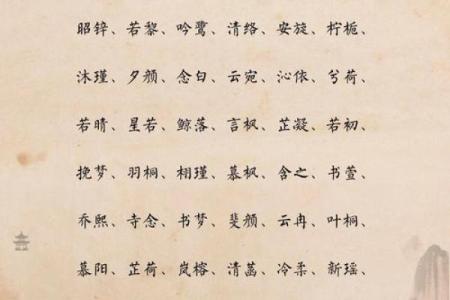 昭锌、若黎、吟鹭、清络、安旋、柠栀、
沐瑾、夕颜、念白、云宛、沁依、兮荷、
若晴、星若、鲸落、言枫、芷凝、若初、
挽梦、羽桐、栩瑾、慕枫、含之、书萱、
乔熙、寺念、书梦、斐颜、云冉、叶桐、
慕阳、芷荷、岚榕、清菡、冷柔、新瑶、